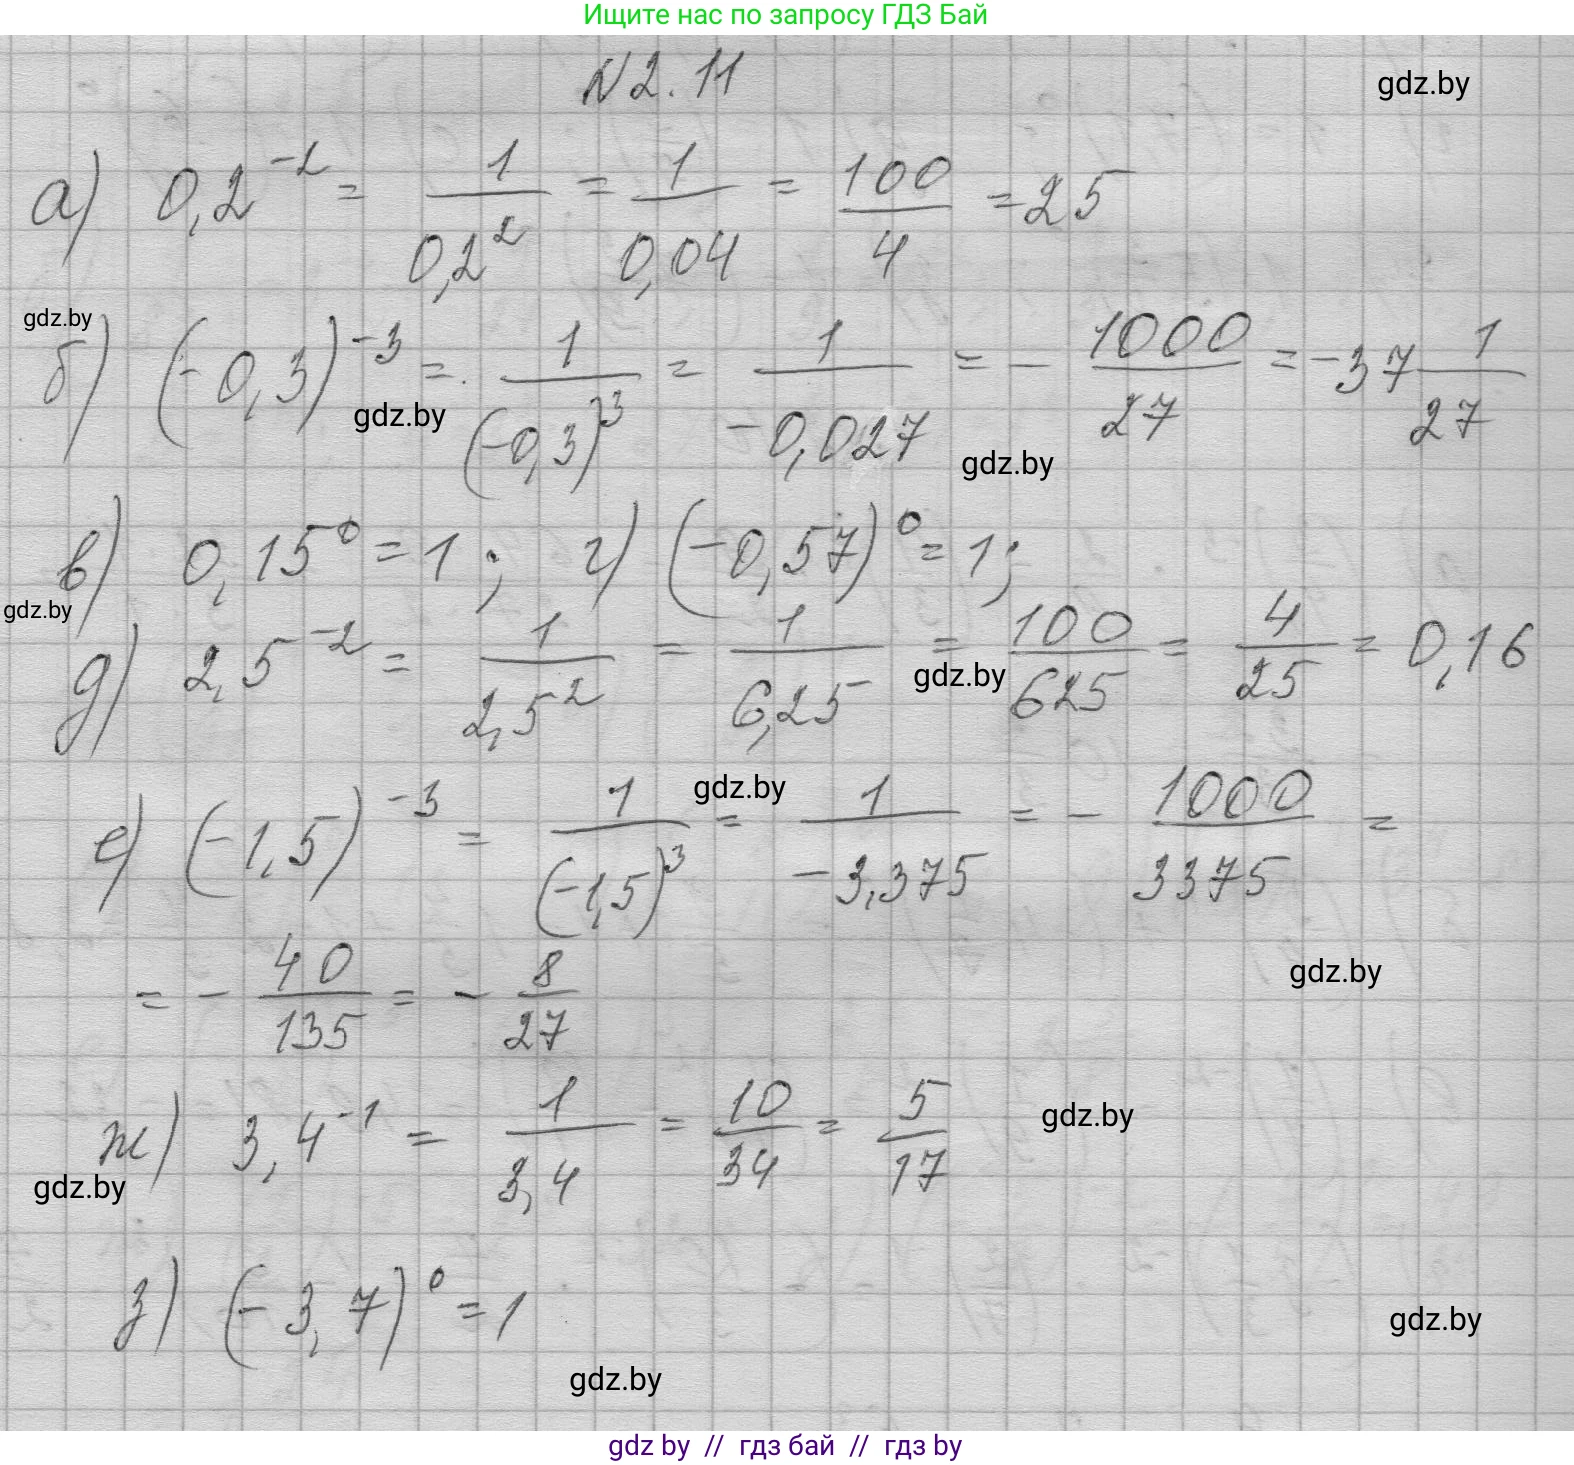 Ищите нас по запросу ГДЗ Бай
N2.11
gdz.by
а) 0,2^-2 = 1/0,2^2 = 1/0,04 = 100/4 = 25
gdz.by
б) (-0,3)^-3 = 1/(-0,3)^3 = 1/-0,027 = - 1000/27 = -37 1/27
gdz.by
gdz.by
в) 0,15^0 = 1 ; г) (-0,57)^0 = 1;
gdz.by
д) 2,5^-2 = 1/2,5^2 = 1/6,25 = 100/625 = 4/25 = 0,16
gdz.by
gdz.by
е) (-1,5)^-3 = 1/(-1,5)^3 = 1/-3,375 = - 1000/3375 =
= - 40/135 = - 8/27
gdz.by
ж) 3,4^-1 = 1/3,4 = 10/34 = 5/17
gdz.by
gdz.by
з) (-3,7)^0 = 1
gdz.by
gdz.by
gdz by // гдз бай // gdz by